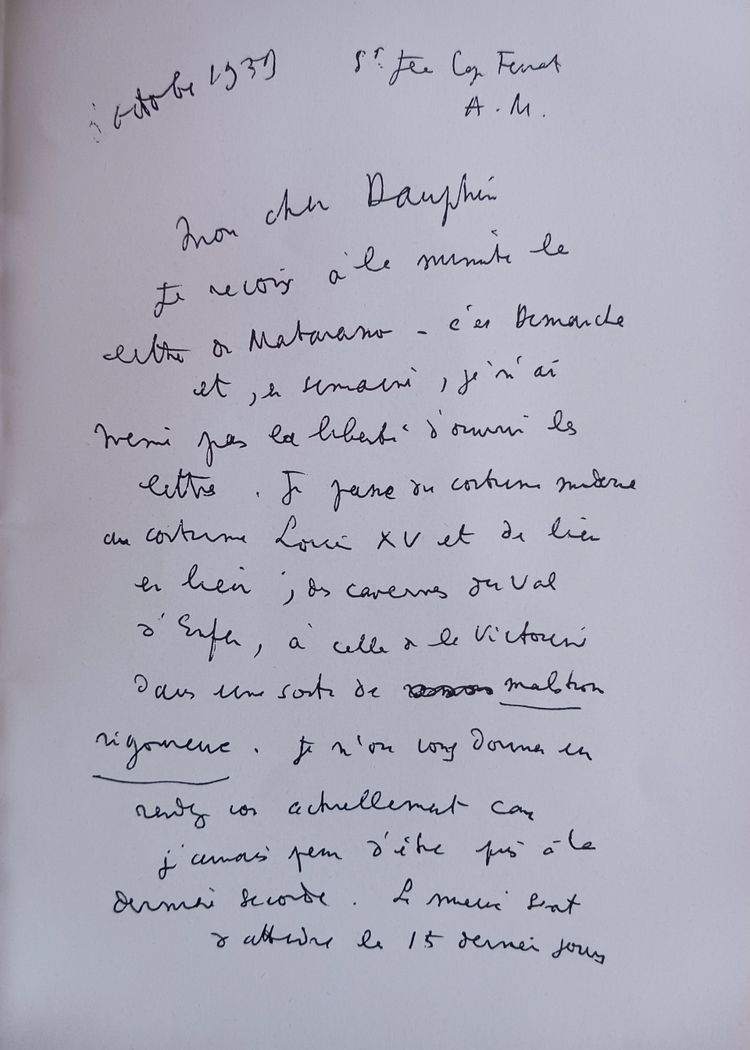 octobre 1959
St Jean Cap Ferrat
A.M.
Mon cher Dauphin
Je reçois à la minute la
lettre de Matarasso - c'est Dimanche
et, en semaine, je n'ai
même pas la liberté d'ouvrir les
lettres. Je passe du costume moderne
au costume Louis XV et de lieu
en lieu, des cavernes du Val
d'Enfer, à celle de la Victorine
dans une sorte de malstrom
rigoureux. Je n'ose vous donner un
rendez vous actuellement car
j'aurais peur d'être pris à la
dernière seconde. Le mieux serait
d'attendre les 15 derniers jours